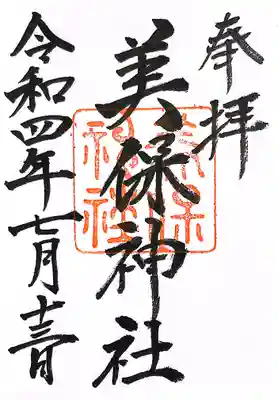 奉拝
美保神社
美保神社
令和四年七月十三日